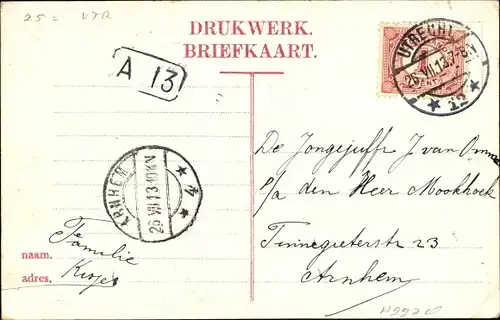 25 = VTR
DRUKWERK.
BRIEFKAART.
A 13
UTRECHT
25 VII 13 7-8N
12
ARNHEM
25 VII 13 10 NV
4
De Jongejuffr J. van
p/a den Heer Mookhoek
Tinnegieterstr 23
Arnhem
Familie
naam.
adres.